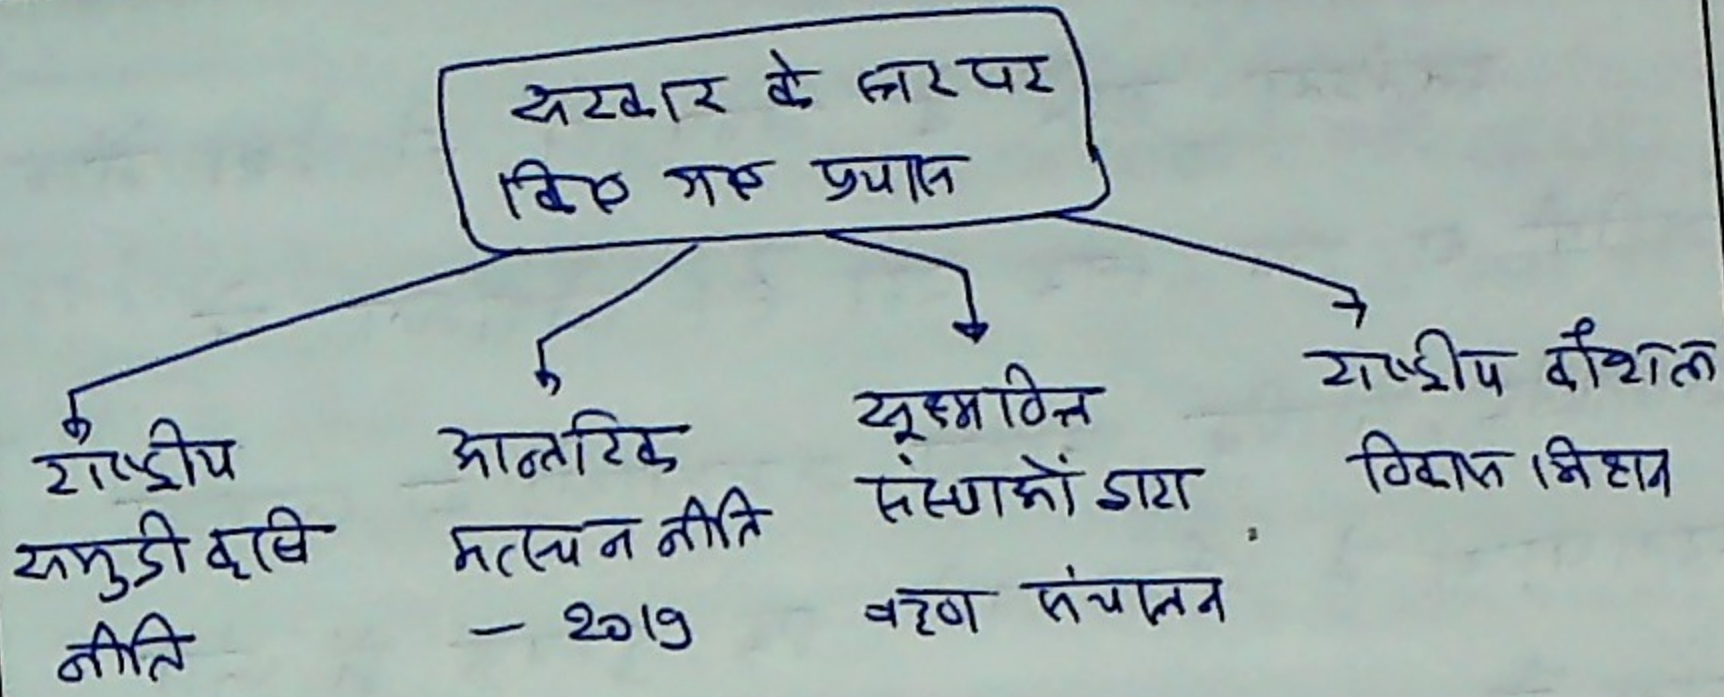 सरकार के स्तर पर
किए गए प्रयास
राष्ट्रीय
समुद्री कृषि
नीति
आन्तरिक
मत्स्यन नीति
- 2019
सूक्ष्म वित्त
संस्थाओं द्वारा
ऋण संचालन
राष्ट्रीय कौशल
विकास मिशन